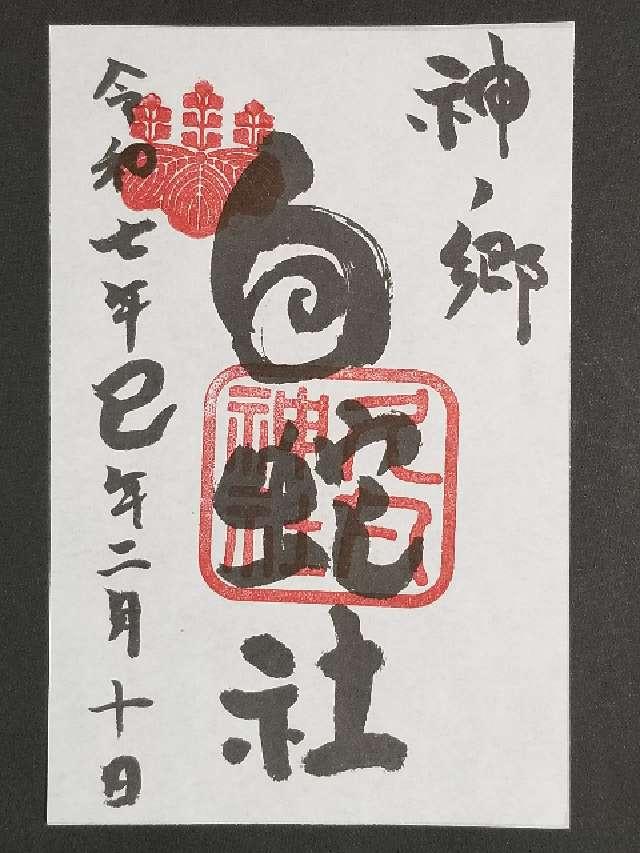 神ノ郷
白蛇社
令和七年巳年二月十日